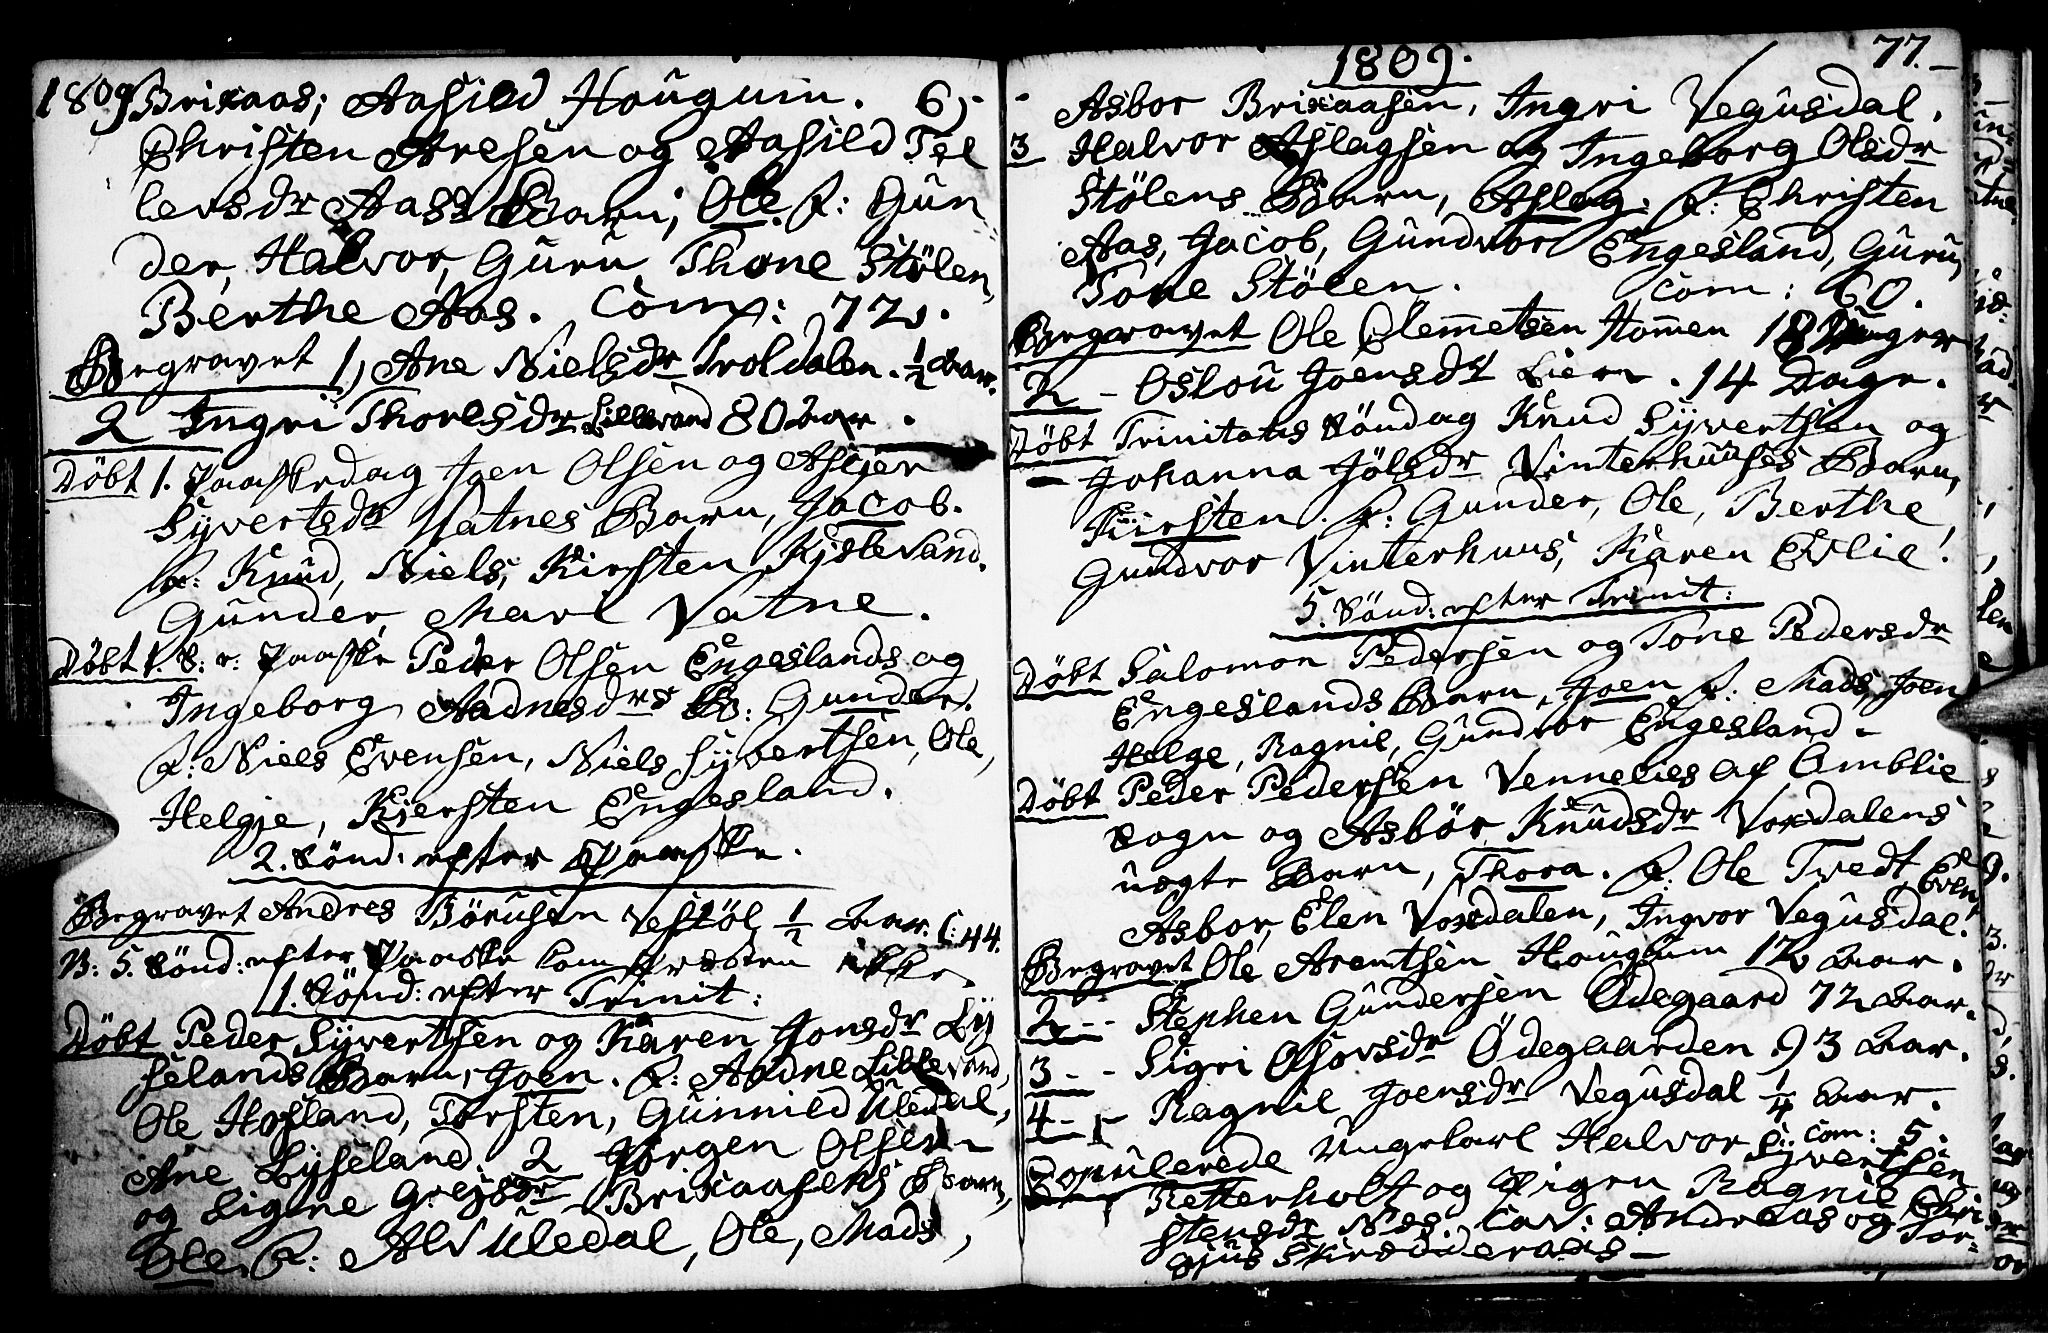 1809 Brixaas; Aasild Hougum. 6)
Christen Aresen og Aasild Tel
levsdr Aass Barn; Ole F: Gun
der, Halvor, Guru, Thone Stölen,
Berthe Aas. Comp: 72.
Begravet 1) Ane Nielsdr Troldalen. ½ Aar.
2 Ingri Thorlsdr Lillevand 80 Aar.
Döbt 1. Paaskedag Joen Olsen og Asljer
Syvertsdr Vatnes Barn, Jacob.
F: Knud, Niels, Kirsten Kjstevand.
Gunder Mari Vatne.
Döbt 1. S: e: Paaske Peder Olsen Engeslands og
Ingeborg Aadnesdrs B: Gunder.
F: Niels Evensen, Niels Syvertsen, Ole,
Helgje, Kjersten Engesland.
2. Sönd: efter Paaske.
Begravet Andres Börusen Vestöl ½ Aar. C: 44.
N: 5. Sönd: efter Paaske kom Præsten ikke
1. Sönd: efter Trinit:
Döbt Peder Syvertsen og Karen Jonsdr Ly
selands Barn, Joen. F: Aadne Lillevand,
Ole Hofland, Torsten, Gunnild Uledal,
Ane Lyseland. 2 Jörgen Olsen
og Signe Gregsdr Brixaasens Barn,
Ole. F: Alv Uledal, Ole, Mads,
1809. 77.
Asbor Brixaasen, Ingri Vegusdal.
3 Halvor Aslagsen og Ingeborg Olsdr
Stölens Barn, Aslag. F: Christen
Aas, Jacob, Gundvor Engesland, Guru,
Tone Stölen. Com: 60.
Begravet Ole Clemetsen Homen 18 Uger
2 - Oslou Joensdr Lien. 14 Dage.
Döbt Trinitatis Söndag Knud Syvertsen og
Johanna Jölsdr Vinterhuuses Barn,
Kirsten. F: Gunder, Ole, Berthe,
Gundvor Vinterhuus, Karen Evlie.
5. Sönd: efter Trinit:
Döbt Salomon Pedersen og Tone Pedersdr
Engeslands Barn, Joen F: Mads, Joen
Helge, Ragnil, Gundvor Engesland.
Döbt Peder Pedersen Vennelies af Omblie
Sogn og Asbör Knudsdr Voxdalens
uægte Barn, Thora. F: Ole Tvedt, Even,
Asbor, Elen Voxdalen, Ingvor Vegusdal.
Begravet Ole Arentsen Hougum 12 Aar.
2 - - Stephen Gundersen Ödegaard 72 Aar.
3 - - Sigri Osovsdr Ödegaarden 93 Aar.
4 - - Ragnil Joensdr Vegusdal ¼ Aar.
Com: 5.
Copulerede Ungekarl Halvor Syvertsen
Retterholt og Pigen Ragnil Chri
stensdr Næs. Cav: Andreas og Tor-
gjus Skiredideraas -